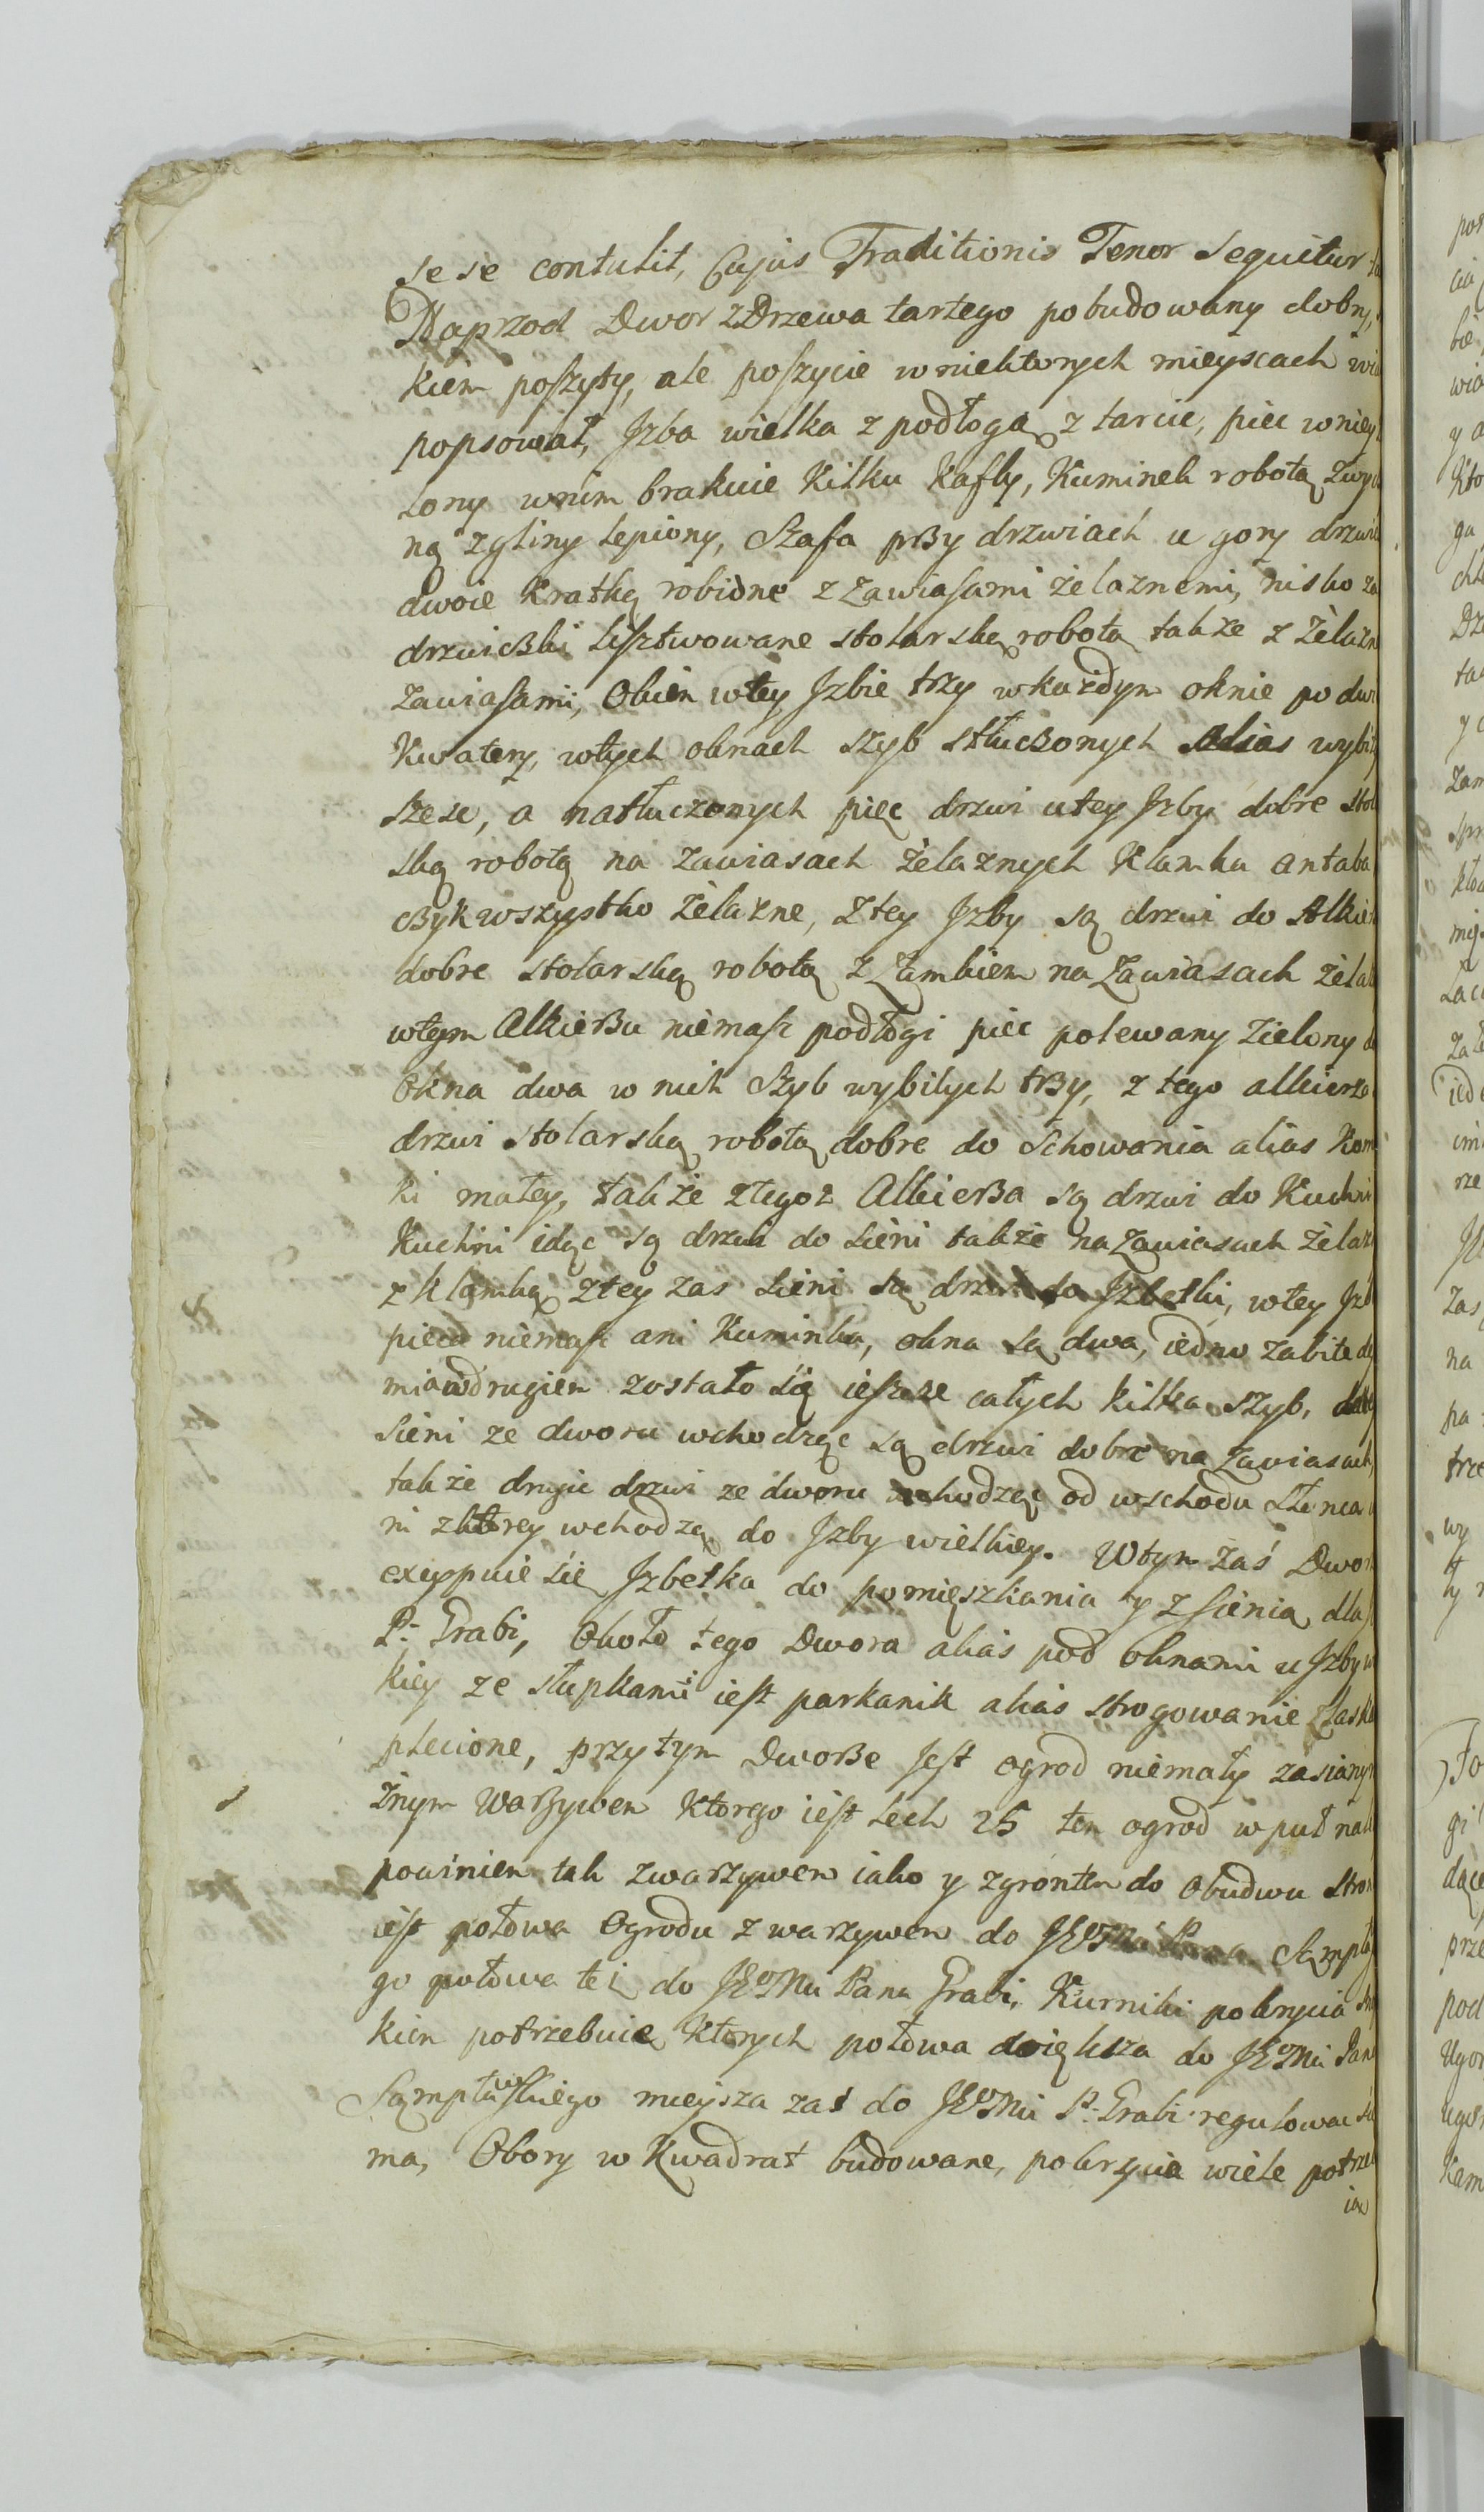 sese contulit, Cujus Traditionis Tenor Sequitur
Naprzod Dwor z Drzewa tartego pobudowany dobry,
kiem poszyty, ale poszycie w niektorych mieyscach
popsował, Jzba wielka z podłogą z tarcic, piec w niey
lony w nim brakuie kilku kafly, Kuminek robotą zwy
ną z gliny lepiony, Szafa przy drzwiach u gory drzwi
dwoie kratką robione z zawiasami żelaznemi, nisko
drzwiczki lisztwowane stolarską robotą także z żelazn
zawiasami, Okien w tey Jzbie trzy w każdym oknie po dwi
kwatery, w tych oknach szyb stłuczonych alias wybit
szesc, a natłuczonych pięc drzwi u tey Jzby dobre stol
ską robotą na zawiasach żelaznych klamka antaba
czyk wszystko żelazne, z tey Jzby są drzwi do Alkier
dobre stolarską robotą z zamkiem na zawiasach żela
w tym Alkierzu niemasz podłogi piec polewany zielony
Okna dwa w nich szyb wybitych trzy, z tego alkierza
drzwi stolarską robotą dobre do Schowania alias kom
ki małey, także z tegoz Alkierza są drzwi do Kuchni
Kuchni idąc są drzwi do sieni także na zawiasach żelaz
z klamką z tey zas sieni są drzwi do Jzbetki, w tey Jzb
pieca niemasz ani Kuminka, okna są dwa, iedno zabite
mi a w drugiem zostało się ieszcze całych kilka szyb,
sieni ze dworu wchodząc są drzwi dobre na zawiasach,
także drugie drzwi ze dworu wchodząc od wschodu słonca
ni z ktorey wchodzą do Jzby wielkiey. W tym zaś Dwor
excypuie się Jzbetka do pomięszkania y z sienią dla
P. Grabi, Około tego Dwora alias pod oknami u Jzby
kiey ze słupkami iest parkanik alias strogowanie z lask
plecione, przy tym Dworze Jest ogrod niemały zasiany
żnym Warzywem ktorego iest lech 25 ten ogrod w puł
powinien tak z warzywem iako y z grontem do obudwu stron
iest połowa Ogrodu z warzywem do JEgoMci Pana Sąmpł
go połowa też do JEgoMci Pana Grabi, Kurniki pokrycia
kiem potrzebuią ktorych połowa większa do JEgoMci Pan
Sąmpławskiego mieysza zas do JEgoMci P. Grabi regulowac
ma, Obory w kwadrat budowane, pokrycia wiele potrzeb